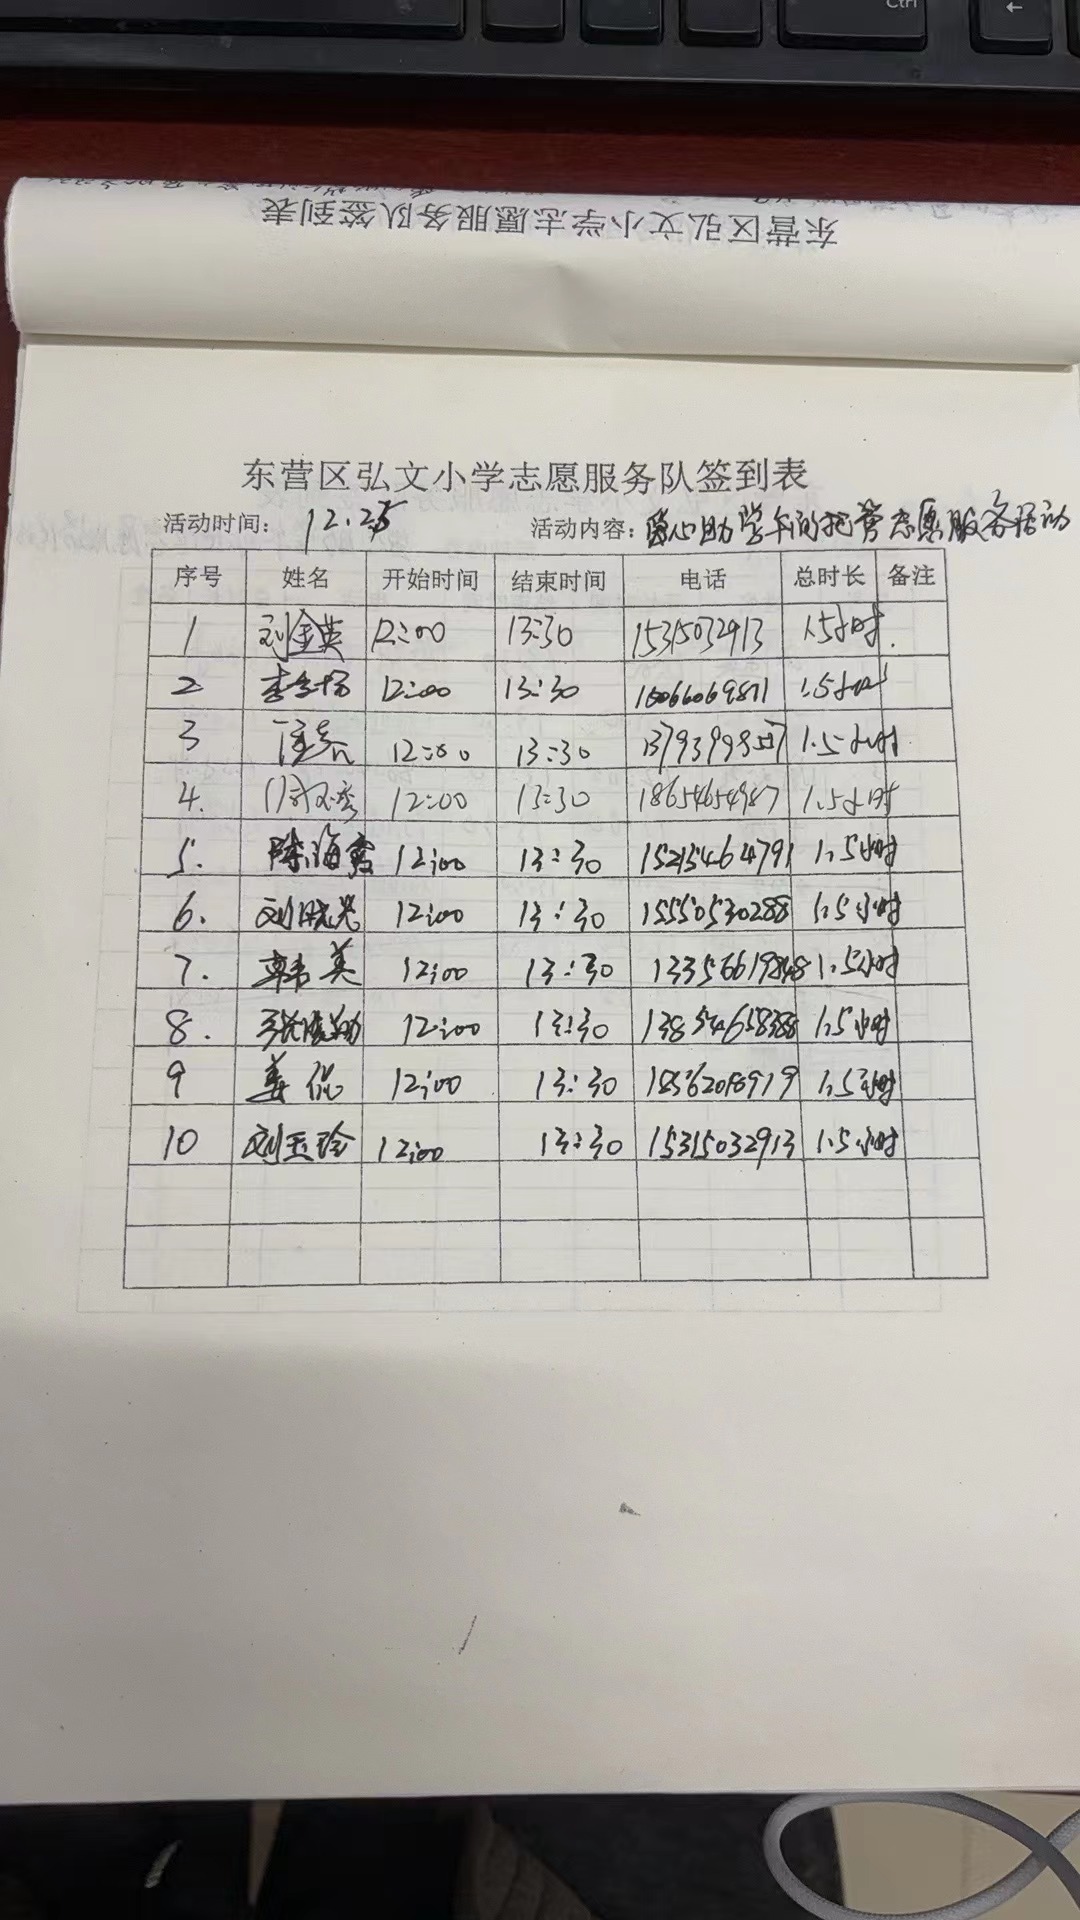 东营区弘文小学志愿服务队签到表
东营区弘文小学志愿服务队签到表
活动时间: 12.25 活动内容: 爱心助学午间托管志愿服务活动
序号 姓名 开始时间 结束时间 电话 总时长 备注
1 刘金英 12:00 13:30 15315032913 1.5小时.
2 12:00 13:30 15066069871 1.5小时
3 12:00 13:30 1.5小时
4. 12:00 13:30 18654654987 1.5小时
5. 陈海霞 12:00 13:30 15215464791 1.5小时
6. 刘晓 12:00 13:30 15550530288 1.5小时
7. 韩英 12:00 13:30 1.5小时
8. 12:00 13:30 1.5小时
9 姜 12:00 13:30 1.5小时
10 刘玉玲 12:00 13:30 15315032913 1.5小时
Ctrl